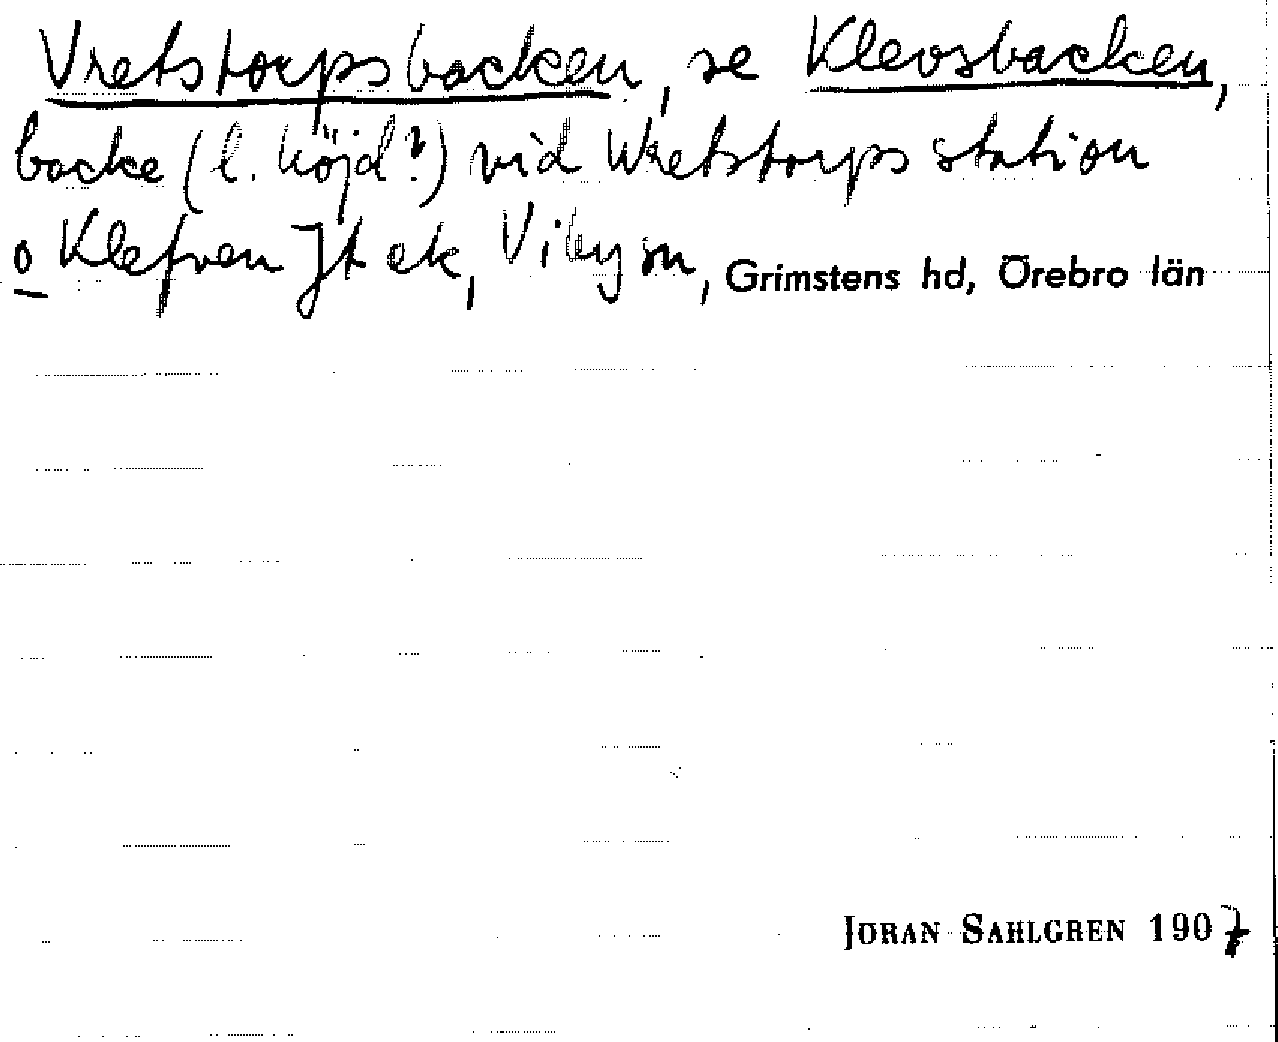 Vretstorpsbacken, se Klevsbacken,
backe (l. höjd?) vid Wretstorps station
o Klefven Jt ek, Viby sn, Grimstens hd, Örebro län
JÖRAN SAHLGREN 1907